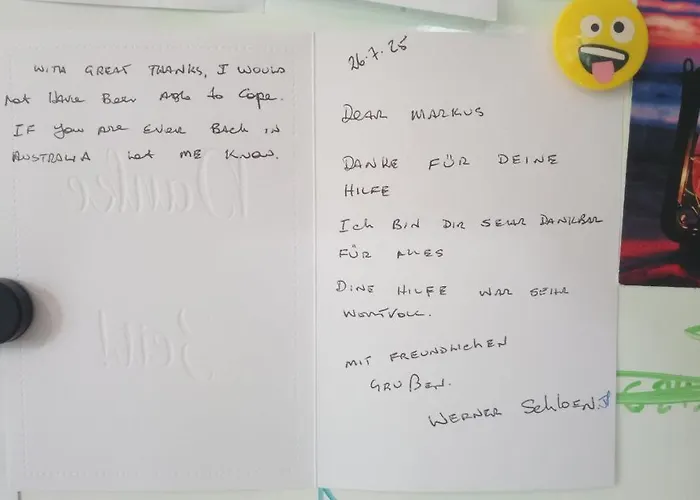 WITH GREAT THANKS, I WOULD
not Have Been Able to Cope.
IF you ARE EVER BACK IN
AUSTRALIA Let ME KNOW.
26.7.25
DEAR MARKUS
DANKE FÜR DEINE
HILFE
Ich BIN DIR SEHR DANKBAR
FÜR ALLES
DINE HILFE WAR SEHR
WORTVOLL.
MIT FREUNDLICHEN
GRUßEN.
WERNER Schloen
Danke